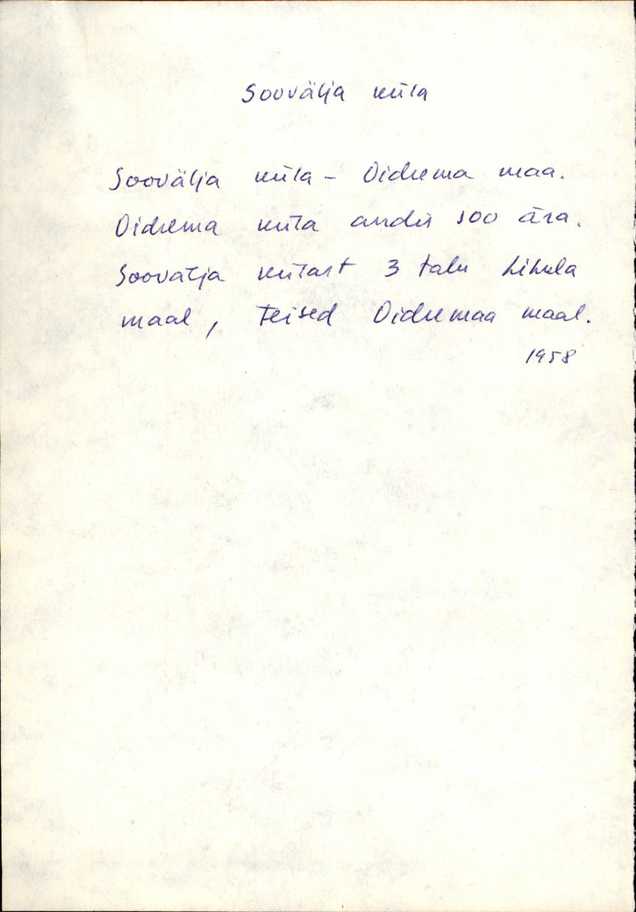 Soovälja küla
Soovälja küla – Oidrema maa.
Oidrema küla andis soo ära.
Soovälja külast 3 talu Lihula
maal, teised Oidremaa maal.
1958